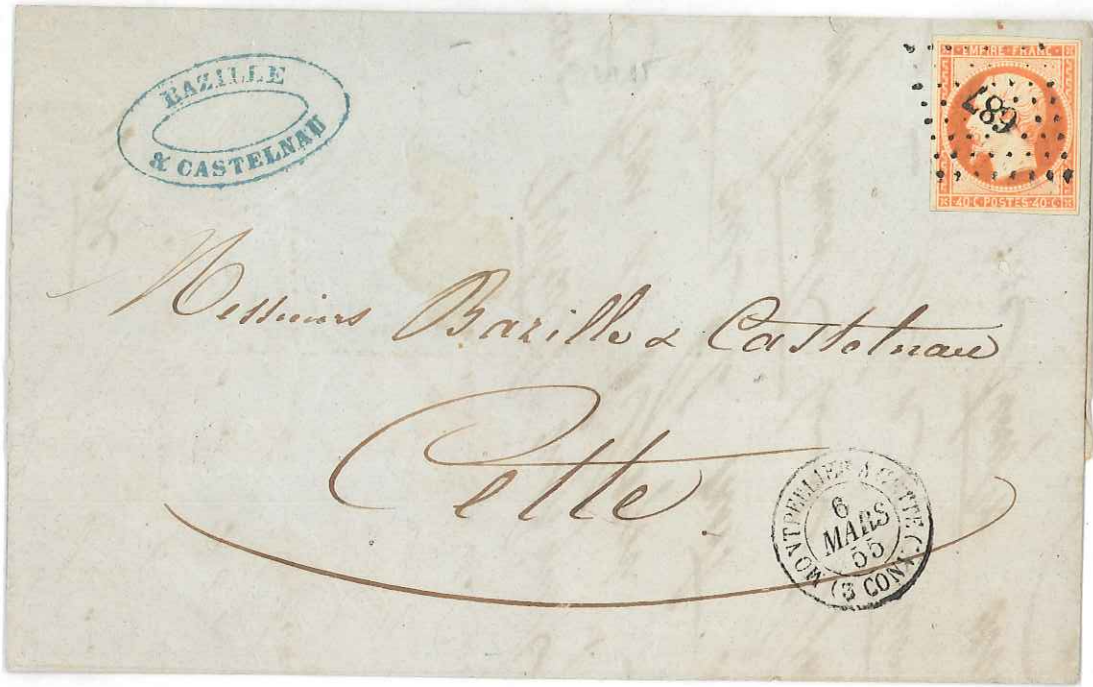 BAZILLE
& CASTELNAU
EMPIRE FRANC
687
40·C POSTES 40·C
Messieurs Bazille & Castelnau
Cette
MONTPELLIER A CETTE
6
MARS
55
(3 CONV.)